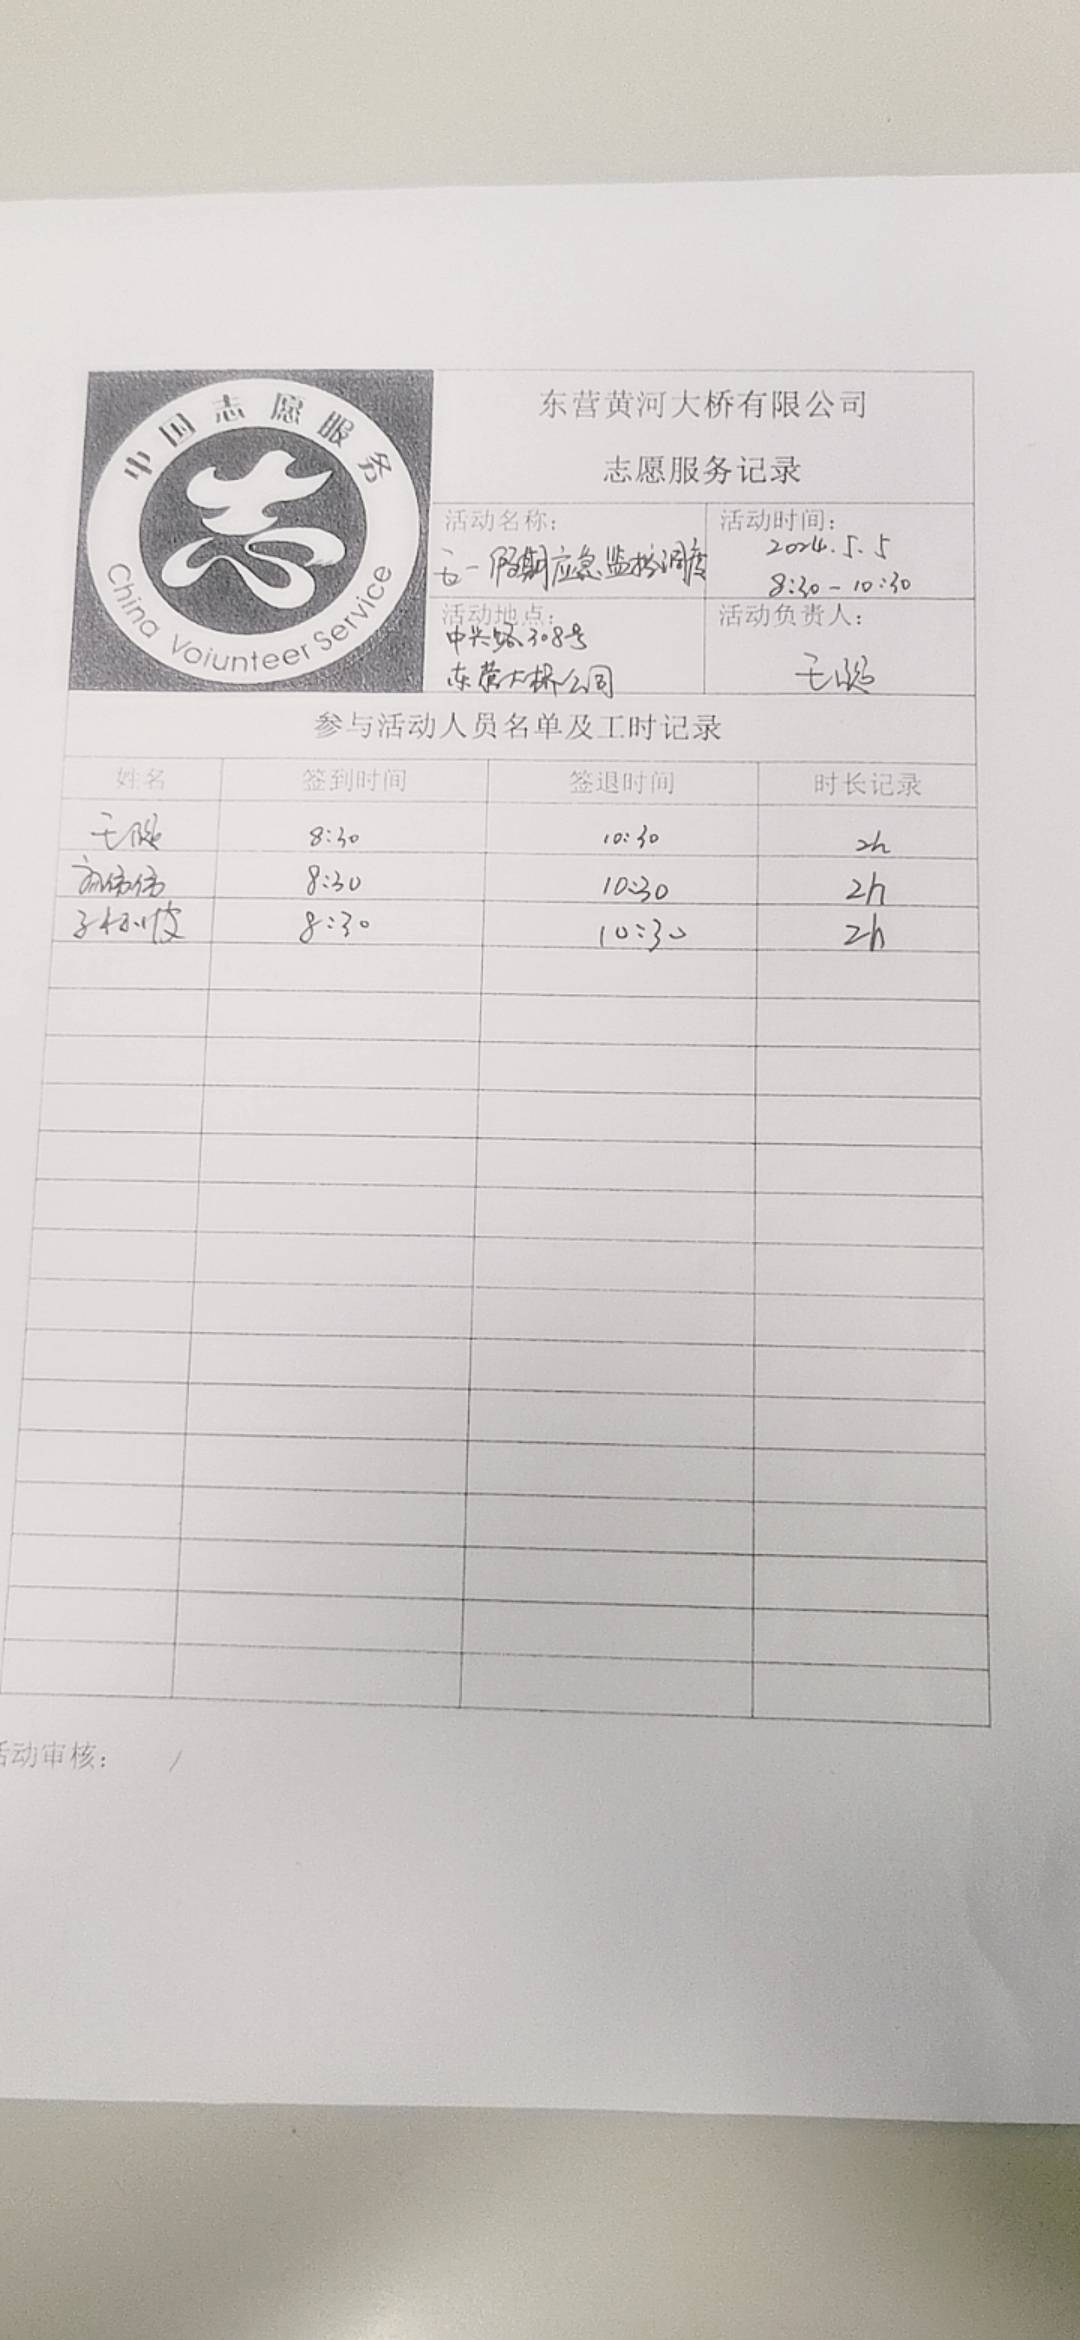 中国志愿服务
China Voiunteer Service
东营黄河大桥有限公司
志愿服务记录
活动名称:
五一假期应急监控调度
活动时间:
2024.5.5
8:30-10:30
活动地点:
308号
东营大桥公司
活动负责人:
参与活动人员名单及工时记录
姓名 签到时间 签退时间 时长记录
8:30 10:30 2h
8:30 10:30 2h
8:30 10:30 2h
活动审核: /